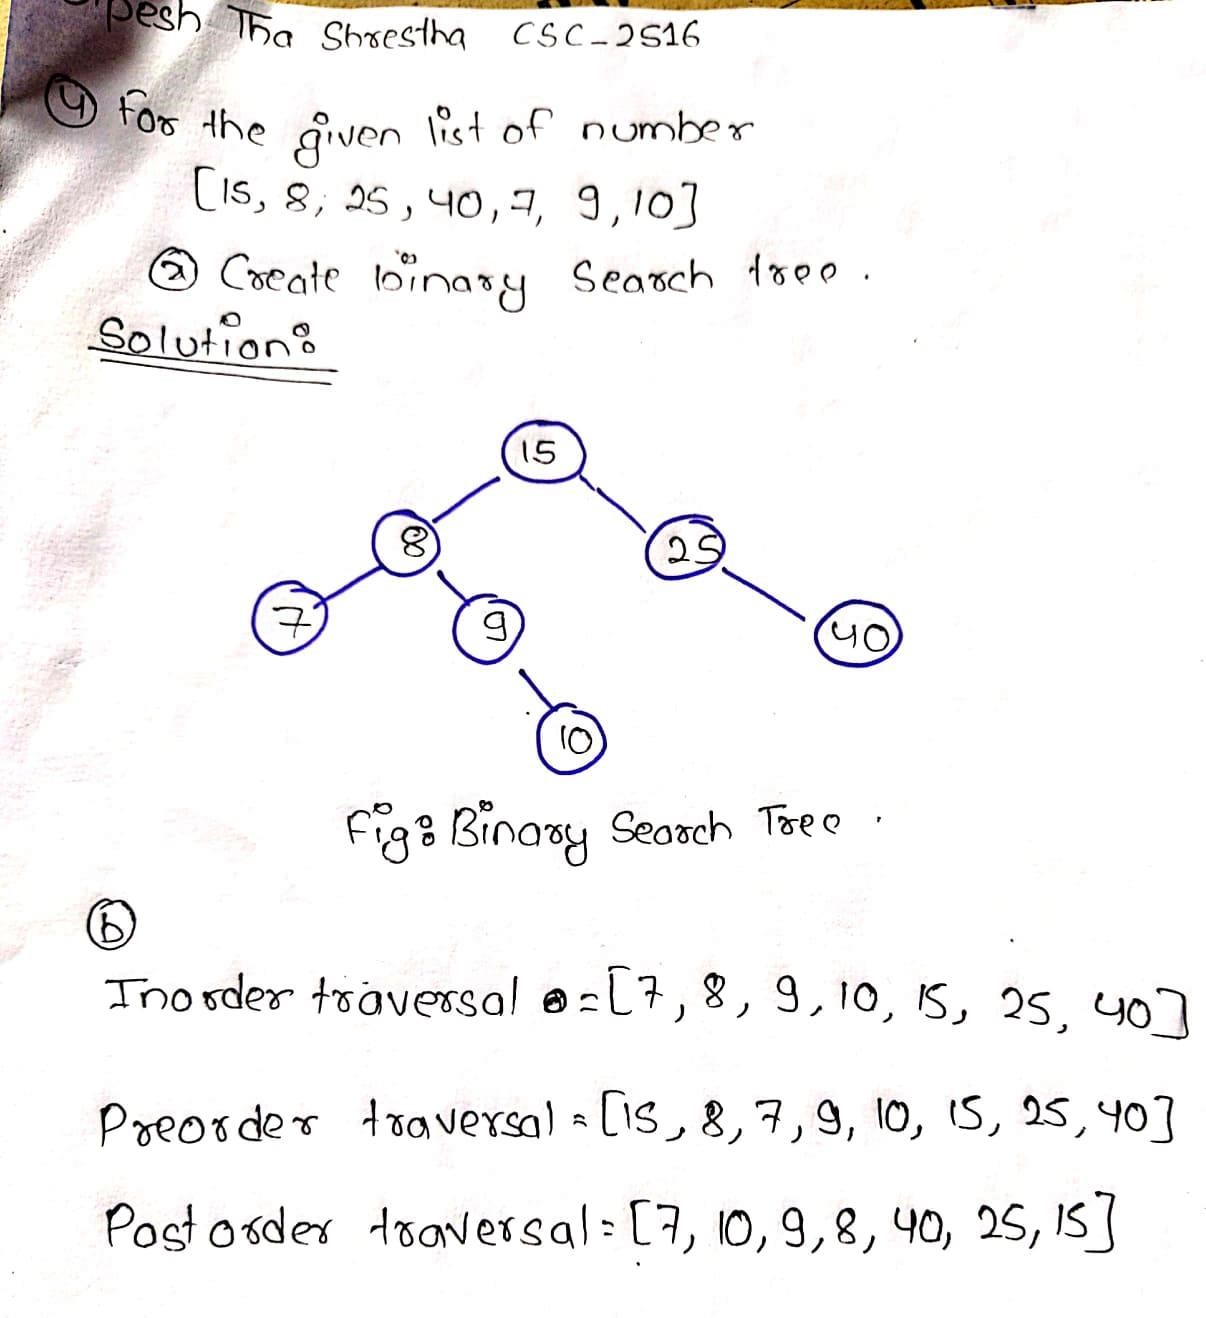 Tha Shrestha CSC-2516
④ For the given list of number
[15, 8, 25, 40, 7, 9, 10]
ⓐ Create binary Search tree.
Solution:
15
8
25
7
9
40
10
Fig: Binary Search Tree.
ⓑ
Inorder traversal = [7, 8, 9, 10, 15, 25, 40]
Preorder traversal = [15, 8, 7, 9, 10, 15, 25, 40]
Post order traversal = [7, 10, 9, 8, 40, 25, 15]